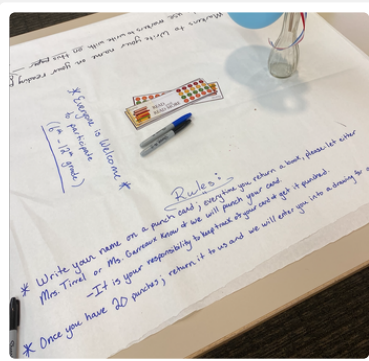 Markers to write your name on your reading
use markers to write with on this paper
* Everyone is Welcome *
to participate
(6th - 12th grade)
READ
READ MORE
Rules:
* Write your name on a punch card; everytime you return a book, please let either
Mrs. Tirrel or Ms. Garreaux know & we will punch your card.
- It is your responsibility to keep track of your card & get it punched.
* Once you have 20 punches; return it to us and we will enter you into a drawing for a